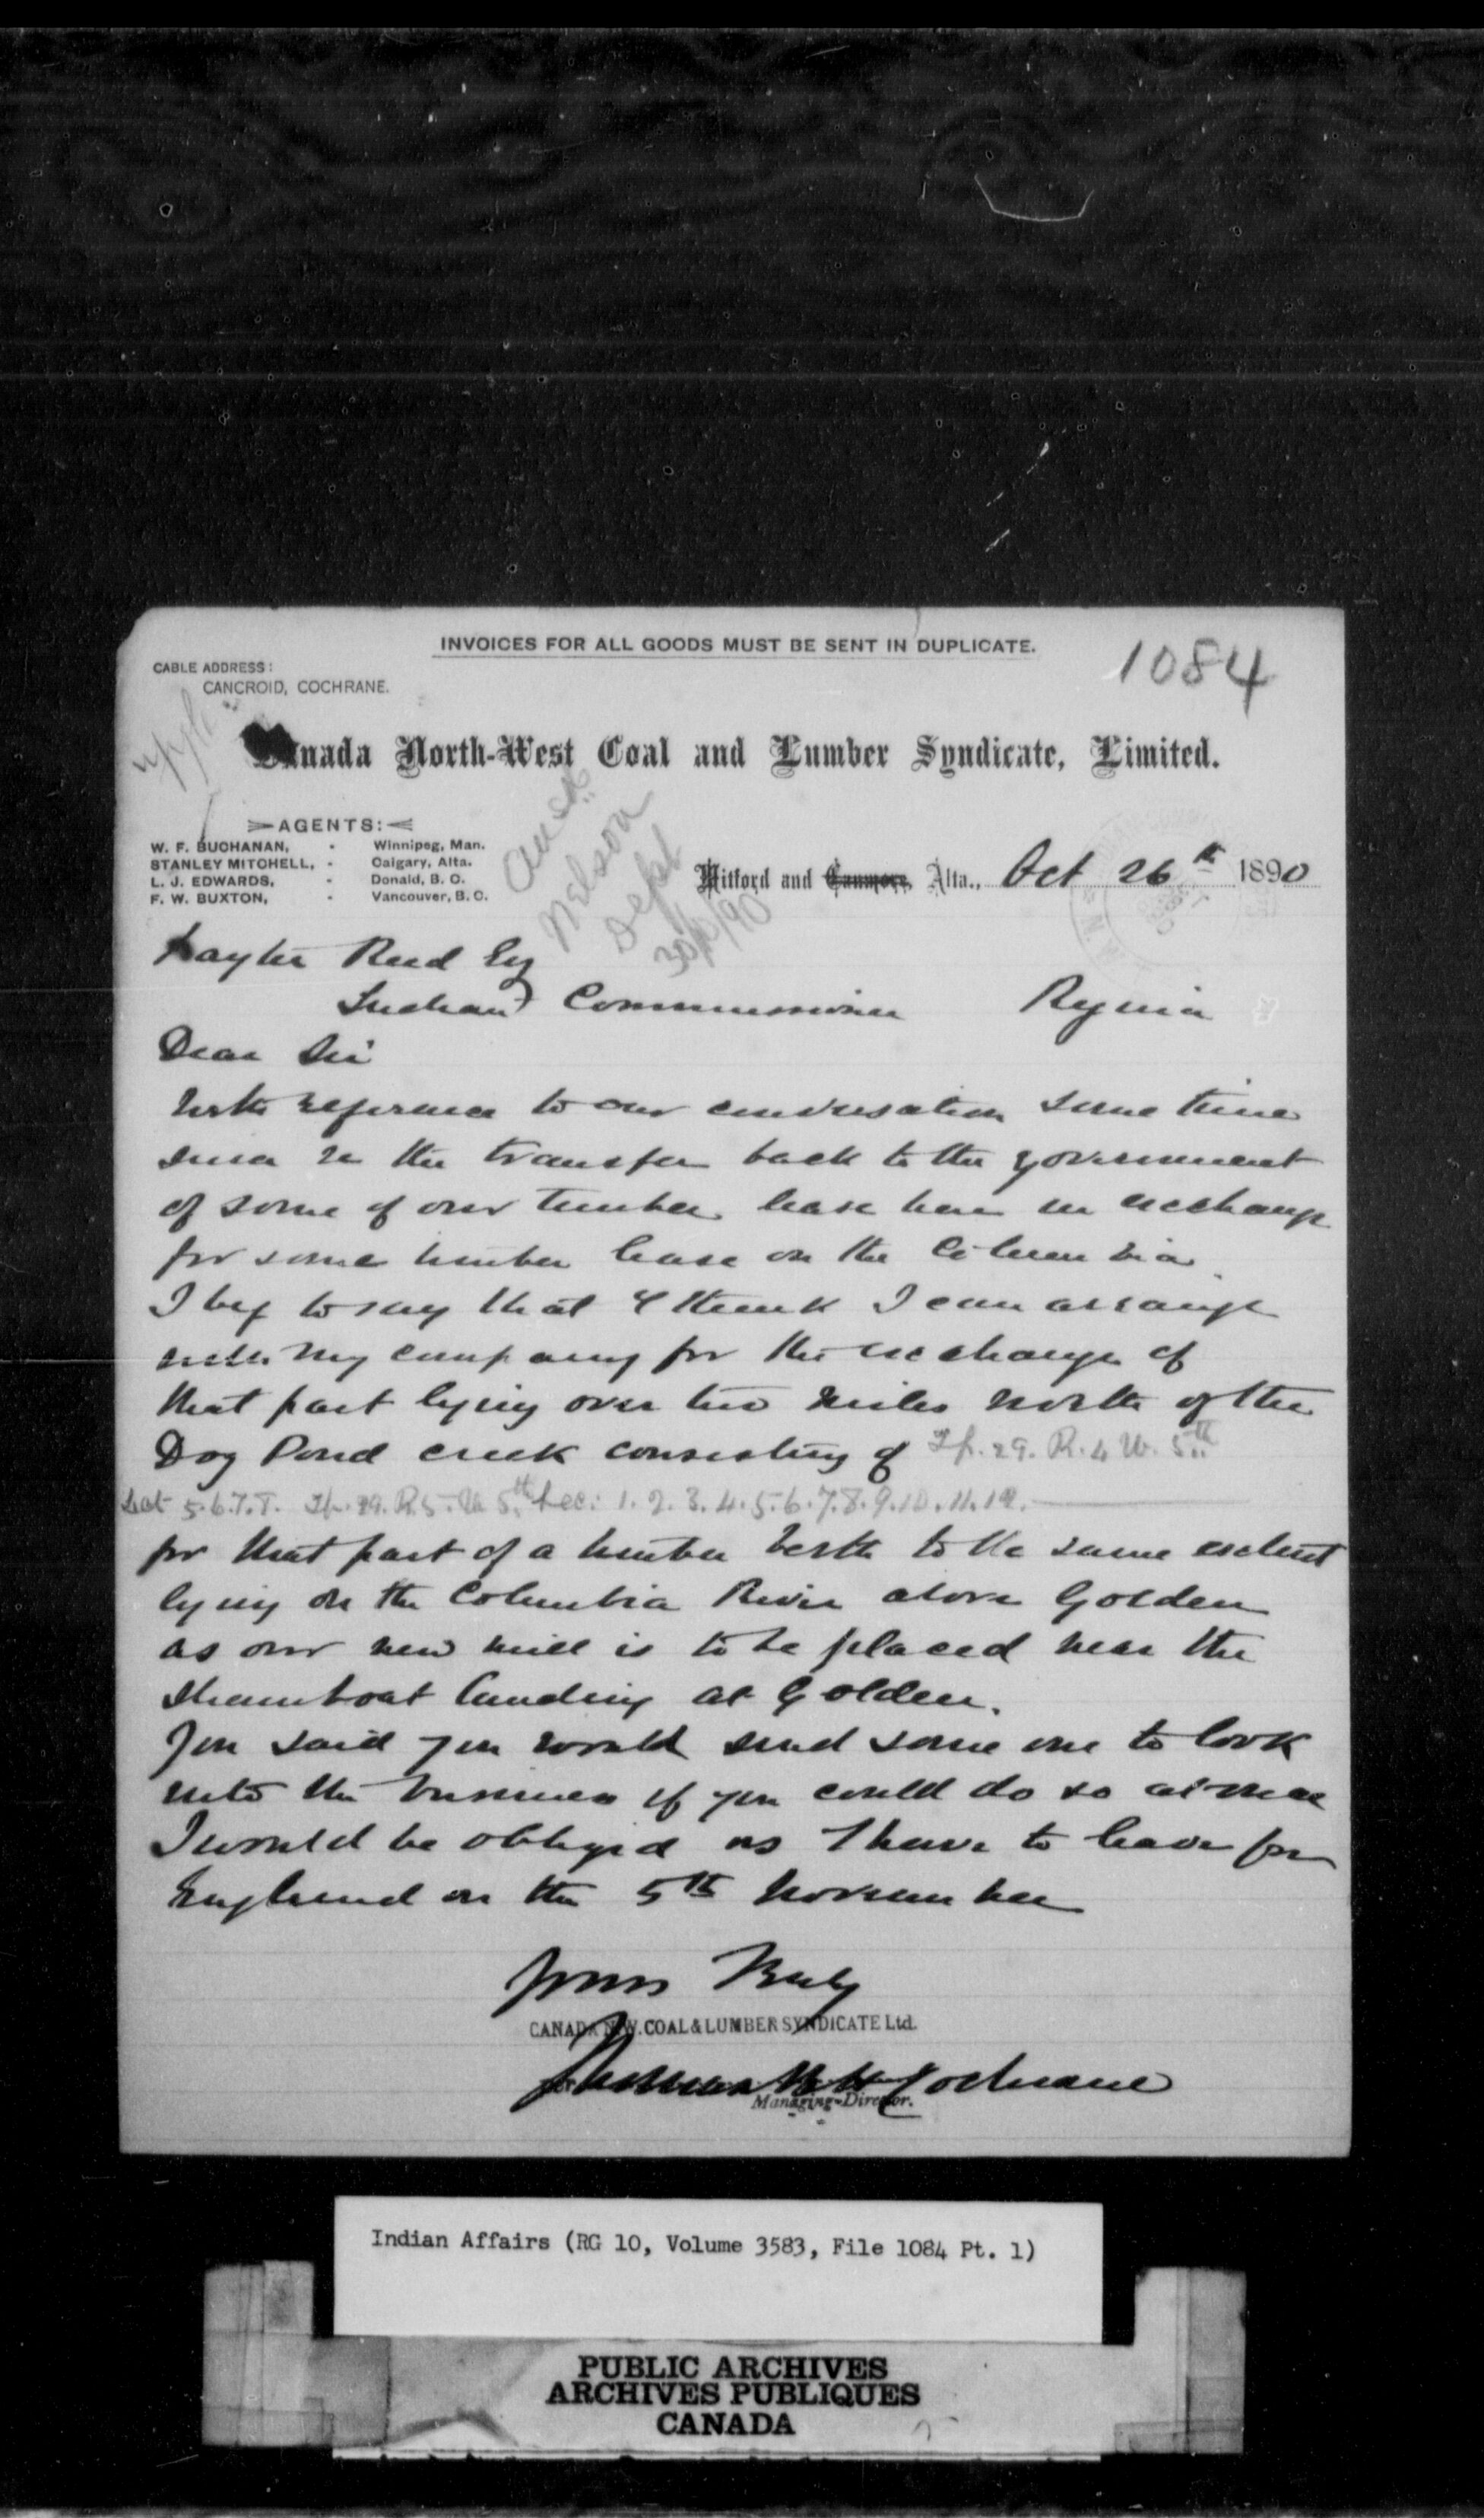 INVOICES FOR ALL GOODS MUST BE SENT IN DUPLICATE.
1084
CABLE ADDRESS:
CANCROID, COCHRANE.
Canada North-West Coal and Lumber Syndicate, Limited.
AGENTS:
W. F. BUCHANAN, - Winnipeg, Man.
STANLEY MITCHELL, - Calgary, Alta.
L. J. EDWARDS, - Donald, B. C.
F. W. BUXTON, - Vancouver, B. C.
Ansd.
Nelson
Dept
30/10/90
Mitford and Canmore, Alta., Oct 26th 1890
Hayter Reed Esq
Indian Commissioner Regina
Dear Sir
With reference to our conversation some time
since re the transfer back to the government
of some of our timber lease here in exchange
for some timber lease on the Columbia
I beg to say that I think I can arrange
with my company for the exchange of
that part lying over two miles north of the
Dog Pond creek consisting of Tp. 29. R. 4 W. 5th
Sec 5.6.7.8. Tp. 29. R. 5. W. 5th Sec: 1. 2. 3. 4. 5. 6. 7. 8. 9. 10. 11. 12.
for that part of a timber berth to the same extent
lying on the Columbia River above Golden
as our new mill is to be placed near the
Steamboat landing at Golden.
You said you would send some one to look
into the business if you could do so at once
I would be obliged as I have to leave for
England on the 5th November
Yours Truly
CANADA N.W. COAL & LUMBER SYNDICATE Ltd.
Cochrane
Managing-Director.
Indian Affairs (RG 10, Volume 3583, File 1084 Pt. 1)
PUBLIC ARCHIVES
ARCHIVES PUBLIQUES
CANADA